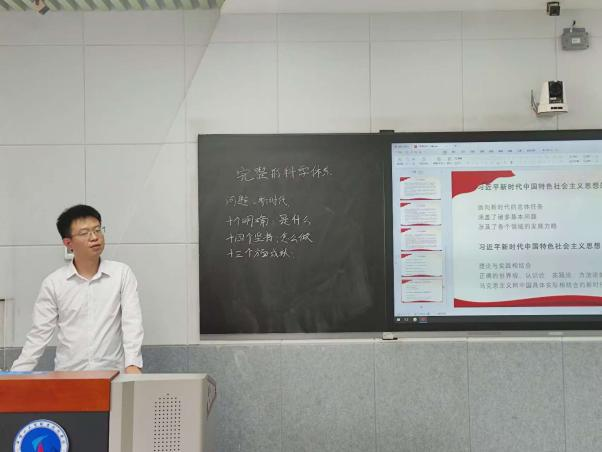 完整的科学体系
问题:新时代
十个明确:是什么
十四个坚持:怎么做
十三个方面成就
习近平新时代中国特色社会主义思想
面向新时代的总体任务
涵盖了诸多基本问题
涉及了各个领域的发展方略
习近平新时代中国特色社会主义思想
理论与实践相结合
正确的世界观、认识论、实践论、方法论
马克思主义同中国具体实际相结合的新时